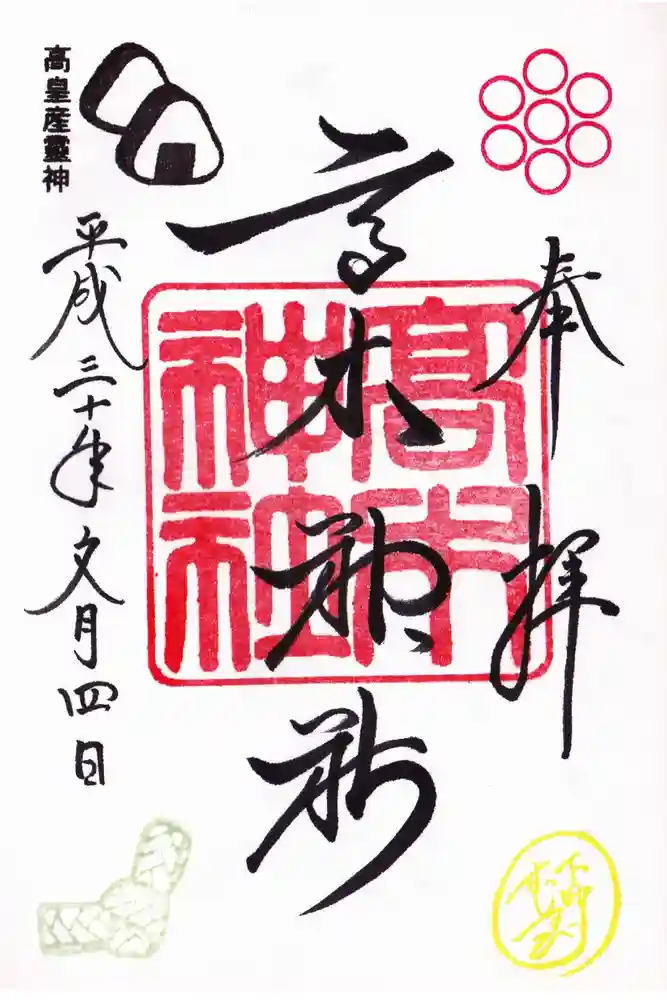 奉拝
高木神社
高木
神社
高皇産靈神
平成三十年文月四日